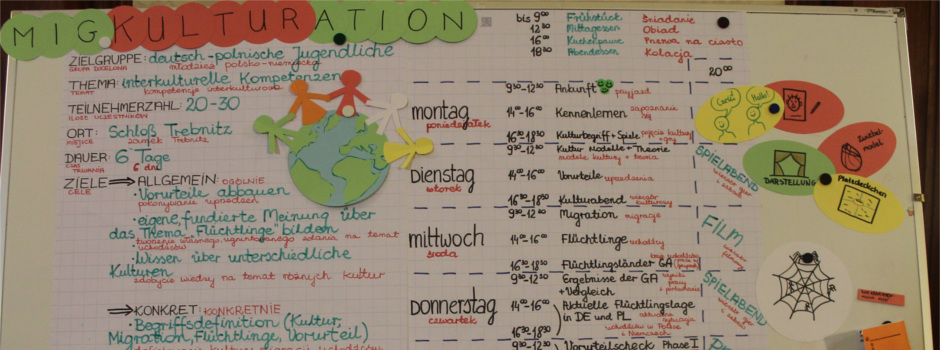 MIGKULTURATION
ZIELGRUPPE: deutsch-polnische Jugendliche
GRUPA DOCELOWA młodzież polsko-niemiecka
THEMA: interkulturelle Kompetenzen
TEMAT kompetencje interkulturowe
TEILNEHMERZAHL: 20-30
ILOŚĆ UCZESTNIKÓW
ORT: Schloß Trebnitz
MIEJSCE zamek Trebnitz
DAUER: 6 Tage
CZAS TRWANIA 6 dni
ZIELE ⇒ ALLGEMEIN: OGÓLNIE
CELE
• Vorurteile abbauen
pokonywanie uprzedzeń
• eigene, fundierte Meinung über
das Thema „Flüchtlinge" bilden
tworzenie własnego, ugruntowanego zdania na temat
uchodźców
• Wissen über unterschiedliche
Kulturen
zdobycie wiedzy na temat różnych kultur
⇒ KONKRET: KONKRETNIE
• Begriffsdefinition (Kultur,
Migration, Flüchtlinge, Vorurteil)
bis 9⁰⁰ Frühstück Śniadanie
12³⁰ Mittagessen Obiad
16⁰⁰ Kuchenpause Przerwa na ciasto
18³⁰ Abendessen Kolacja
20⁰⁰
montag
poniedziałek
9³⁰-12³⁰ Ankunft przyjazd
14⁰⁰-16⁰⁰ Kennenlernen zapoznanie się
16³⁰-18³⁰ Kulturbegriff + Spiele pojęcia kultury + gry
Dienstag
wtorek
9³⁰-12³⁰ Kultur Modelle + Theorie
modele kultury + teoria
14⁰⁰-16⁰⁰ Vorurteile uprzedzenia
16³⁰-18³⁰ Kulturabend wieczór kulturowy
SPIELABEND
mittwoch
środa
9³⁰-12³⁰ Migration migracje
14⁰⁰-16⁰⁰ Flüchtlinge uchodźcy
16³⁰-18³⁰ Flüchtlingsländer GA
FILM
Donnerstag
czwartek
9³⁰-12³⁰ Ergebnisse der GA
+ Vergleich
14⁰⁰-16⁰⁰ Aktuelle Flüchtlingslage
in DE und PL
uchodźców w Polsce
i Niemczech
16³⁰-18³⁰
SPIELABEND
9³⁰-12³⁰ Vorurteilscheck Phase I
Cześć! Hallo!
DARSTELLUNG
Zwiebel-
model
Platzdeckchen